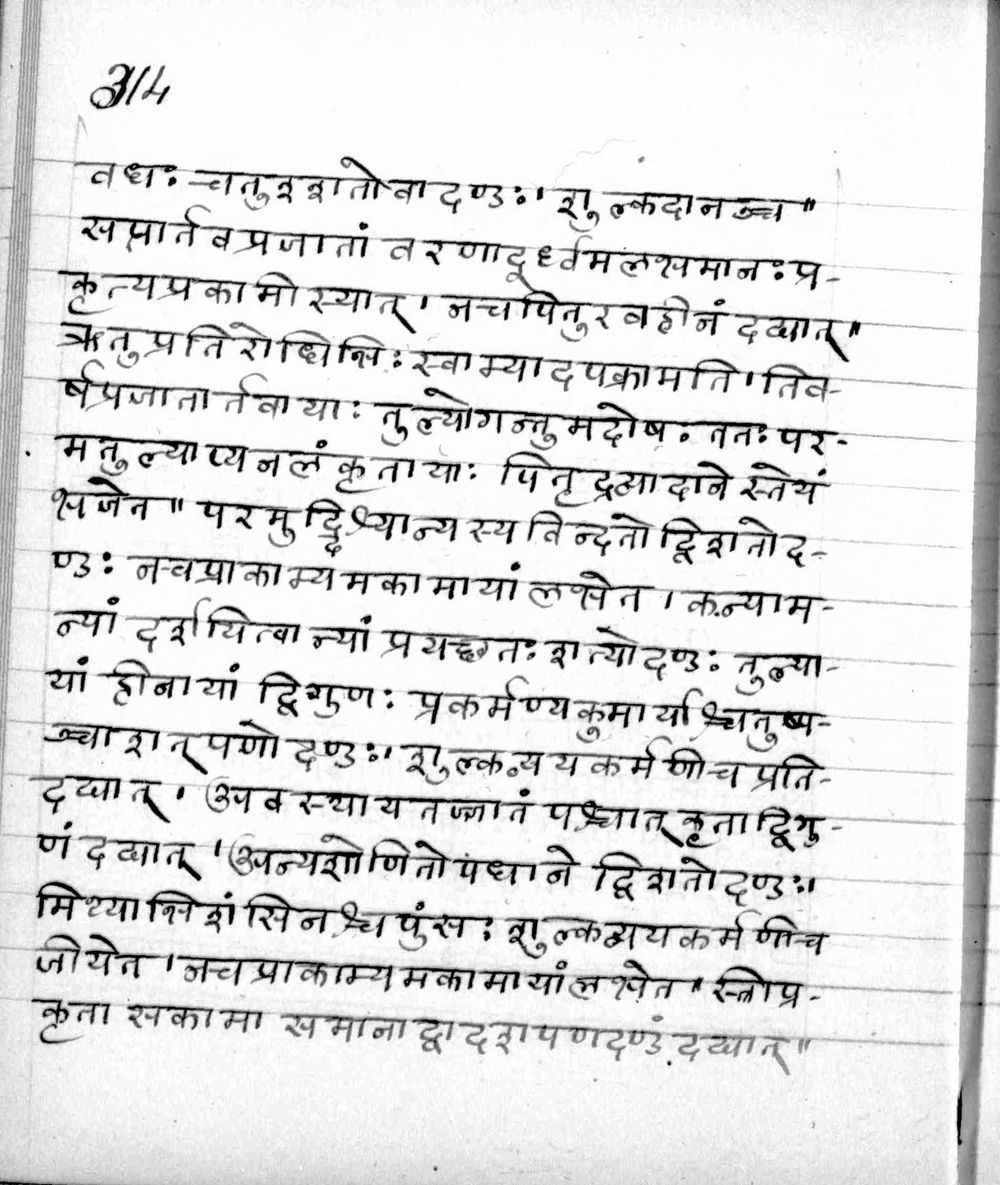 314
वधः चतुश्शतो वा दण्डः। शुल्कदानञ्च॥
सप्तार्तवप्रजातां वरणादूर्ध्वमलभमानः प्र-
कृत्य प्रकामी स्यात्। नच पितुरवहीनं दद्यात्॥
ऋतुप्रतिरोधिभिः स्वाम्यादपक्रामति। त्रिव-
र्षप्रजातार्तवायाः तुल्यो गन्तुमदोषः ततः पर-
मतुल्याप्यनलंकृतायाः पितृद्रव्यादाने स्तेयं
भजेत॥ परमुद्दिश्यान्यस्य विन्दतो द्विशतो द-
ण्डः नच प्राकाम्यमकामायां लभेत। कन्याम-
न्यां दर्शयित्वान्यां प्रयच्छतः शत्यो दण्डः तुल्या-
यां हीनायां द्विगुणः प्रकर्मण्यकुमार्याश्चतुष्प-
ञ्चाशत्पणो दण्डः। शुल्कव्ययकर्मणी च प्रति-
दद्यात्। अवस्थाय तज्जातं पश्चात्कृता द्विगु-
णं दद्यात्। अन्यशोणितोपधाने द्विशतो दण्डः।
मिथ्याभिशंसिनश्च पुंसः शुल्कव्ययकर्मणी च
जीयेत। नच प्राकाम्यमकामायां लभेत॥ स्त्रीप्र-
कृता सकामा समाना द्वादशपणदण्डं दद्यात्॥